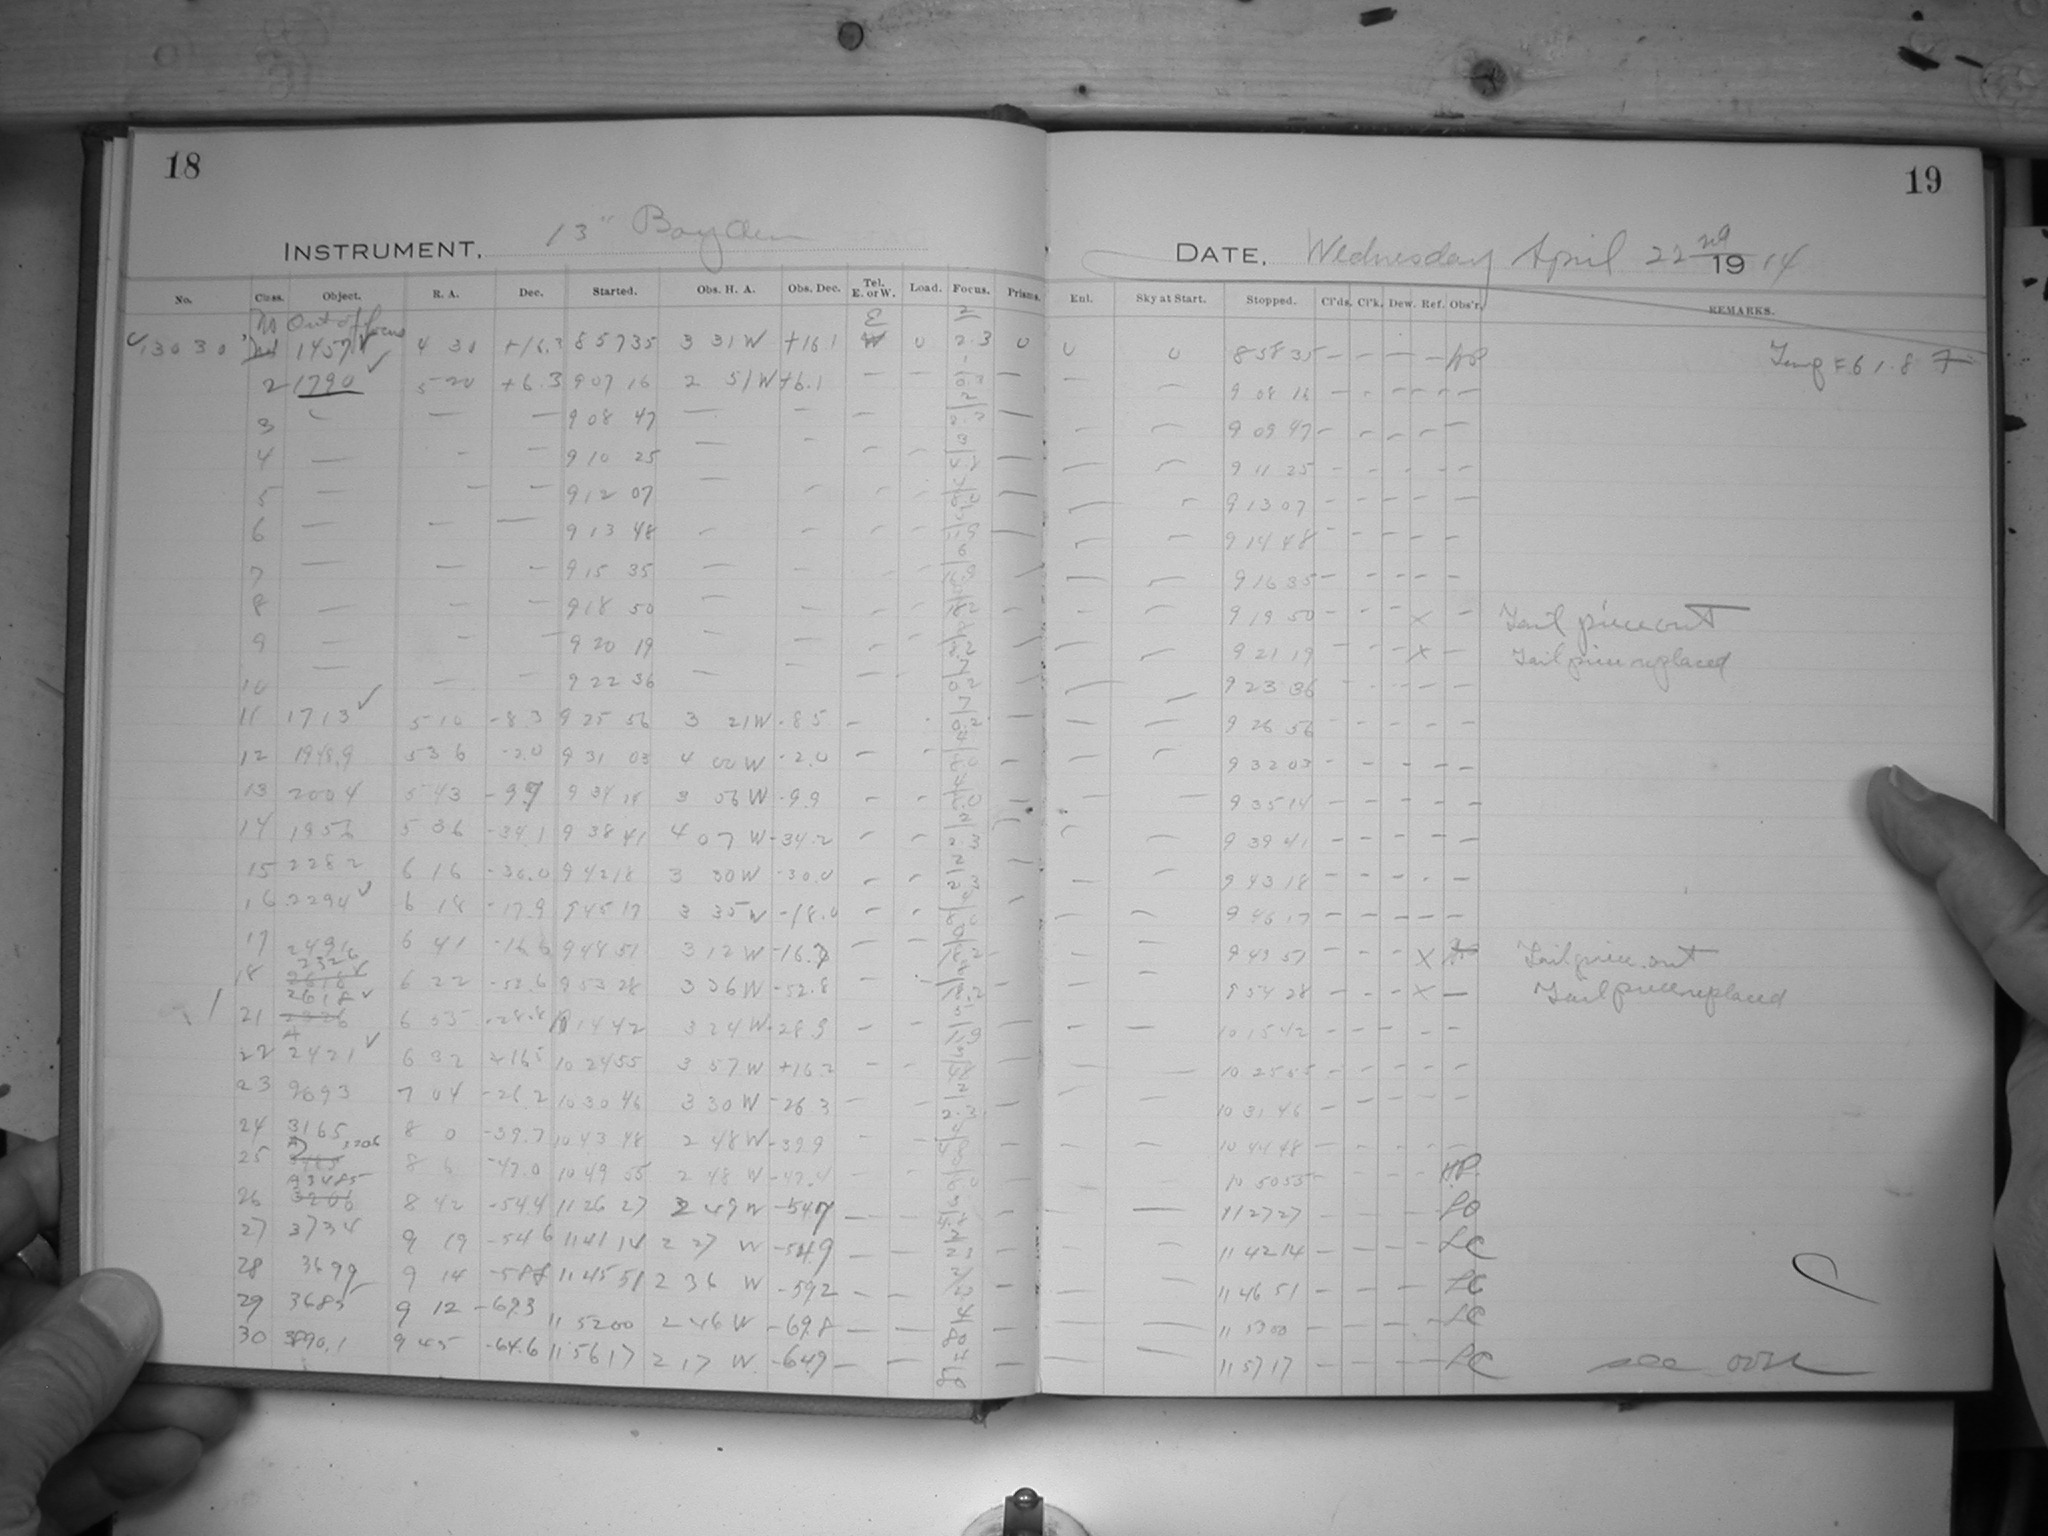 18
19
INSTRUMENT. 13" Boyden
DATE. Wednesday April 22nd 1914
No. Class. Object. R. A. Dec. Started. Obs. H. A. Obs. Dec. Tel. E. or W. Load. Focus. Prisms. Enl. Sky at Start. Stopped. Cl'ds. Cl'k. Dew. Ref. Obs'r. REMARKS.
Out of focus E
13030 1457 4 30 +16.3 8 57 35 3 31 W +16.1 W 0 2.3 0 0 0 8 58 35 - - - - Temp F 61.8
2 1790 5 20 +6.3 9 07 16 2 51 W +6.1 - - - - - 9 08 16 - - - - -
3 - - - 9 08 47 - - - - - - 9 09 47 - - - - -
4 - - - 9 10 25 - - - - - - - 9 11 25 - - - - -
5 - - - 9 12 07 - - - - - - - 9 13 07 - - - - -
6 - - - 9 13 48 - - - - - - - 9 14 48 - - - - -
7 - - - 9 15 35 - - - - - - - 9 16 35 - - - - -
8 - - - 9 18 50 - - - - - - - 9 19 50 - - - x - Tail piece out
9 - - - 9 20 19 - - - - - - - 9 21 19 - - - x - Tail piece replaced
10 - - - 9 22 36 - - - - - - - 9 23 36 - - - - -
11 1713 5 10 -8.3 9 25 56 3 21 W -8.5 - - - - 9 26 56 - - - - -
12 1948.9 5 36 -2.0 9 31 03 4 00 W -2.0 - - - - - 9 32 03 - - - - -
13 2004 5 43 -9.9 9 34 14 3 06 W -9.9 - - - - - 9 35 14 - - - - -
14 1956 5 36 -34.1 9 38 41 4 07 W -34.2 - - 2.3 - - - 9 39 41 - - - - -
15 2282 6 16 -30.0 9 42 18 3 30 W -30.0 - - - - 9 43 18 - - - - -
16 2294 6 18 -17.9 9 45 17 3 35 W -18.0 - - - - - 9 46 17 - - - - -
17 2491 6 41 -16.6 9 48 51 3 12 W -16.7 - - - - - 9 49 51 - - - x Tail piece out
2326
18 2618 6 22 -52.6 9 53 28 3 36 W -52.8 - - - - - 9 54 28 - - - x - Tail piece replaced
2618
21 2326 6 53 -28.8 10 14 42 3 24 W -28.9 - - - - - 10 15 42 - - - - -
A
22 2421 6 32 +16.5 10 24 55 3 57 W +16.2 - - - - - 10 25 55 - - - - -
23 2693 7 04 -26.2 10 30 46 3 30 W -26.3 - - 2.3 - - - 10 31 46 - - - - -
24 3165 8 0 -39.7 10 43 48 2 48 W -39.9 - - - - - 10 44 48 - - - - -
3206
25 3485 8 6 -47.0 10 49 55 2 48 W - - - - - 10 50 55 - - - -
A 3485
26 3206 8 42 -54.4 11 26 27 2 49 W -54.7 - - - - - 11 27 27 - - - -
27 3734 9 19 -54.6 11 41 14 2 27 W -54.9 - - - - 11 42 14 - - - - LC
28 3699 9 14 -58.8 11 45 51 2 36 W -59.2 - - - - 11 46 51 - - - - LC
29 3685 9 12 -69.3 11 52 00 2 46 W -69.8 - - - - - 11 53 00 - - - - LC
30 3890.1 9 45 -64.6 11 56 17 2 17 W -64.9 - - - - - 11 57 17 - - - - LC see over